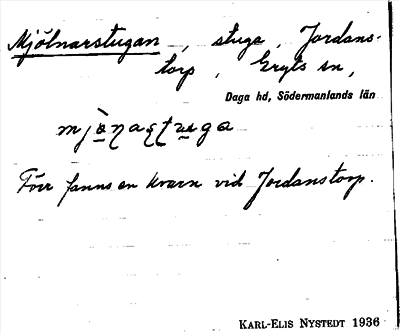 Mjölnarstugan, stuga, Jordans-
torp, Gryts sn,
Daga hd, Södermanlands län
Förr fanns en kvarn vid Jordanstorp.
KARL-ELIS NYSTEDT 1936